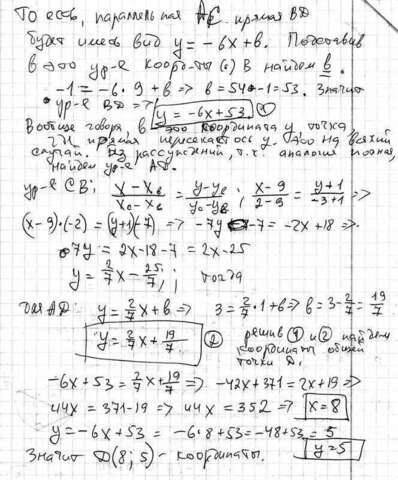 То есть, параллельная AC прямая BD
будет иметь вид y = -6x+b. Подставив
в это ур-е коорд-ты (·) B найдем b.
-1 = -6·9+b => b = 54-1 = 53. Значит
ур-е BD => y = -6x+53. ①
Вообще говоря, b - это координата y, точка,
где прямая пересекает ось y. Это на всякий
случай. Из рассуждений, т.ч. аналогия полная,
найдем ур-е AD.
ур-е CB: (x-x_B)/(x_C-x_B) = (y-y_B)/(y_C-y_B); (x-9)/(2-9) = (y+1)/(-3+1) =>
(x-9)·(-2) = (y+1)(-7) => -7y-7 = -2x+18 =>
7y = 2x-18-7 = 2x-25
y = 2/7 x - 25/7; тогда
для AD: y = 2/7 x + b => 3 = 2/7·1+b => b = 3-2/7 = 19/7
y = 2/7 x + 19/7. ② решив ① и ② найдем
координаты общей
точки D.
-6x+53 = 2/7 x + 19/7 => -42x+371 = 2x+19 =>
44x = 371-19 => 44x = 352 => x=8
y = -6x+53 = -6·8+53 = -48+53 = 5
y=5
Значит D(8; 5) - координаты.